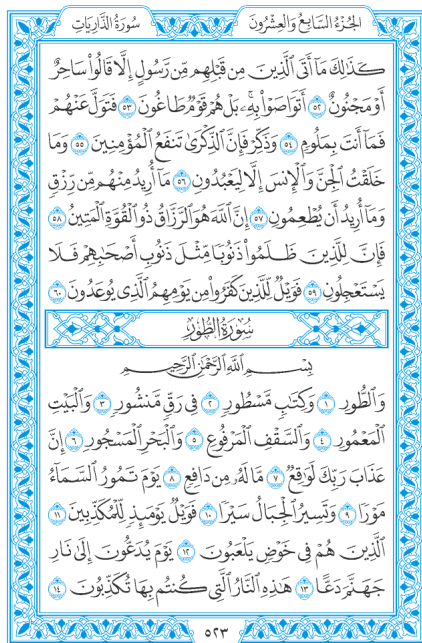 الجُزْءُ السَّابِعُ وَالعِشْرُونَ
سُورَةُ الذَّارِيَاتِ
كَذَٰلِكَ مَآ أَتَى ٱلَّذِينَ مِن قَبْلِهِم مِّن رَّسُولٍ إِلَّا قَالُوا۟ سَاحِرٌ
أَوْ مَجْنُونٌ ٥٢ أَتَوَاصَوْا۟ بِهِۦ ۚ بَلْ هُمْ قَوْمٌ طَاغُونَ ٥٣ فَتَوَلَّ عَنْهُمْ
فَمَآ أَنتَ بِمَلُومٍ ٥٤ وَذَكِّرْ فَإِنَّ ٱلذِّكْرَىٰ تَنفَعُ ٱلْمُؤْمِنِينَ ٥٥ وَمَا
خَلَقْتُ ٱلْجِنَّ وَٱلْإِنسَ إِلَّا لِيَعْبُدُونِ ٥٦ مَآ أُرِيدُ مِنْهُم مِّن رِّزْقٍ
وَمَآ أُرِيدُ أَن يُطْعِمُونِ ٥٧ إِنَّ ٱللَّهَ هُوَ ٱلرَّزَّاقُ ذُو ٱلْقُوَّةِ ٱلْمَتِينُ ٥٨
فَإِنَّ لِلَّذِينَ ظَلَمُوا۟ ذَنُوبًا مِّثْلَ ذَنُوبِ أَصْحَٰبِهِمْ فَلَا
يَسْتَعْجِلُونِ ٥٩ فَوَيْلٌ لِّلَّذِينَ كَفَرُوا۟ مِن يَوْمِهِمُ ٱلَّذِى يُوعَدُونَ ٦٠
سُورَةُ الطُّورِ
بِسْمِ ٱللَّهِ ٱلرَّحْمَٰنِ ٱلرَّحِيمِ
وَٱلطُّورِ ١ وَكِتَٰبٍ مَّسْطُورٍ ٢ فِى رَقٍّ مَّنشُورٍ ٣ وَٱلْبَيْتِ
ٱلْمَعْمُورِ ٤ وَٱلسَّقْفِ ٱلْمَرْفُوعِ ٥ وَٱلْبَحْرِ ٱلْمَسْجُورِ ٦ إِنَّ
عَذَابَ رَبِّكَ لَوَٰقِعٌ ٧ مَّا لَهُۥ مِن دَافِعٍ ٨ يَوْمَ تَمُورُ ٱلسَّمَآءُ
مَوْرًا ٩ وَتَسِيرُ ٱلْجِبَالُ سَيْرًا ١٠ فَوَيْلٌ يَوْمَئِذٍ لِّلْمُكَذِّبِينَ ١١
ٱلَّذِينَ هُمْ فِى خَوْضٍ يَلْعَبُونَ ١٢ يَوْمَ يُدَعُّونَ إِلَىٰ نَارِ
جَهَنَّمَ دَعًّا ١٣ هَٰذِهِ ٱلنَّارُ ٱلَّتِى كُنتُم بِهَا تُكَذِّبُونَ ١٤
٥٢٣